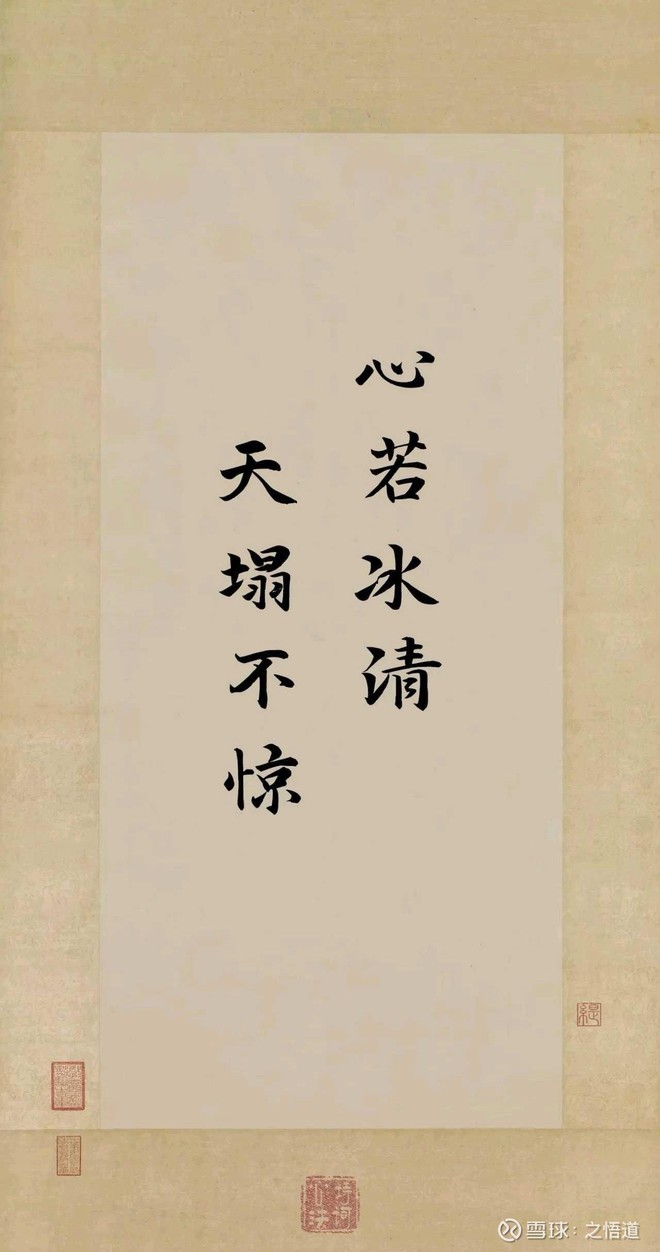 心若冰清
天塌不惊
雪球：之悟道